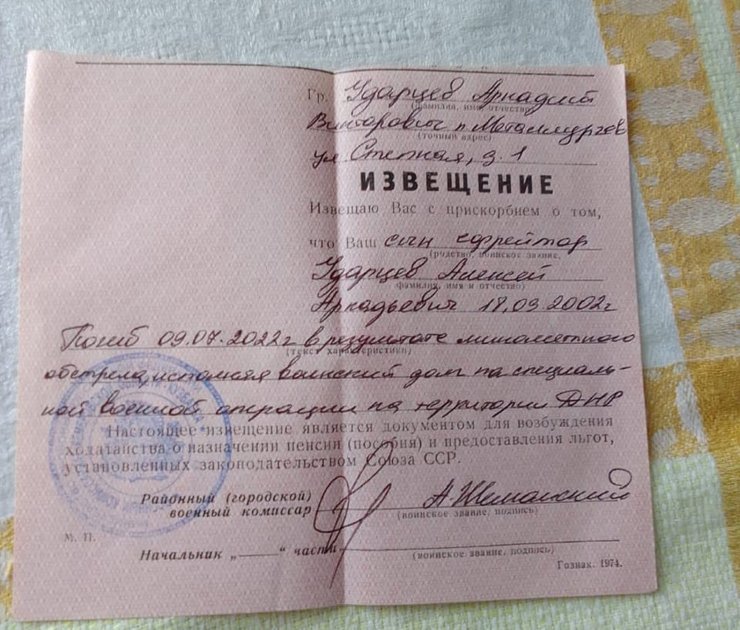 Гр. Ударцев Аркадий
(фамилия, имя, отчество)
Викторович п. Металлургов
(точный адрес)
ул. Степная, д. 1
ИЗВЕЩЕНИЕ
Извещаю Вас с прискорбием о том,
что Ваш сын ефрейтор
(родство, воинское звание,
Ударцев Алексей
фамилия, имя и отчество)
Аркадьевич 18.09.2002г
Погиб 09.07.2022г в результате минометного
(текст характеристики)
обстрела, исполняя воинский долг на специаль-
ной военной операции на территории ДНР
Настоящее извещение является документом для возбуждения
ходатайства о назначении пенсии (пособия) и предоставления льгот,
установленных законодательством Союза ССР.
Районный (городской)
военный комиссар А.
(воинское звание, подпись)
М. П.
Начальник „——“ части
(воинское звание, подпись)
Гознак. 1974.